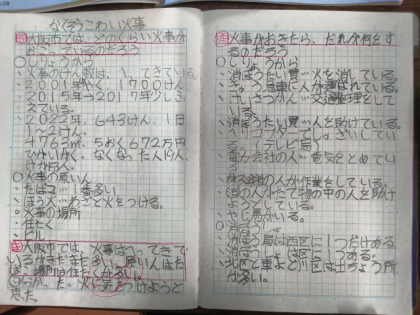 なくそうこわい火事
大阪市では、どのくらい火事が
おこっているのだろう
○しりょうから
・火事のけん数は、へってきている。
・2001年やく1700けん
・2015年→2017年少しふ
えている。
・2022年、643けん、1日
1~2けん。
・4763㎡、5おく672万円
ひがいがく、なくなった人19人、
○火事の原いん
・たばこ…1番多い
・ほう火…わざと火をつける。
○火事の場所
・住たく
・ビル
大阪市では、火事はへってきて
いるがまだまだ多い。原いんはた
ばこ、場所は住たくが多い。
火に気をつけようと
思った。
火事がおきたら、だれが何をす
るのだろう
○しりょうから
・消ぼうたい員…火を消している。
・きゅう急車に人が運ばれている。
・けいさつかん…交通整理をして
いる。
・消ぼうたい員…人を助けている。
・ヘリコプターでしゅざいしてい
る。(テレビ局)
・電力会社の人…電気をとめてい
る。
・ガス会社の人が作業をしている。
・たて物の中の人を助け
ようとしている。
・やじ馬がいる。
○消ぼうしょ
・消ぼう局は西区に1つだけある
・消ぼうしょは
・北区で
が多い。